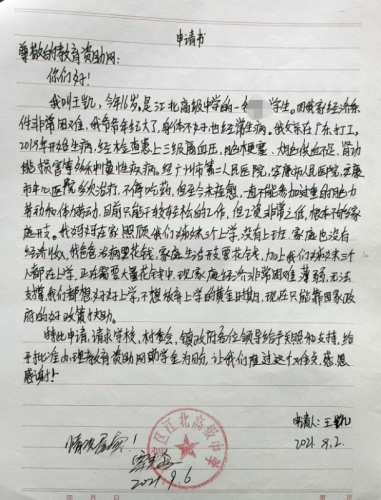 申请书
尊敬的教育资助网：
你们好！
我叫王凯，今年16岁，是江北高级中学的一名 学生。因我家经济条
件非常困难，我爸爸年纪大了，身体不好，也经常生病。我父亲在广东打工，
2019年开始生病，经检查患上三级高血压，脑梗塞、大脑供血不足、肾功
能损害等多种慢性疾病。经广州市第二人民医院，安康市人民医院，安康
市中心医院多次治疗，不断吃药，但至今未痊愈，一直不能参加过重的脑力
劳动和体力劳动，目前只能干较轻松的工作，但工资非常之低，根本不够家
庭开支。我妈妈在家照顾我们姊妹三个上学，没有上班，家庭也没有
经济收入，我爸爸治病要花钱，家庭生活开支要花钱，加上我们姊妹三个
人都在上学，正在需要大量花钱中，现家庭经济非常困难薄弱，无法
支撑，我们都想好好上学，不想放弃上学的黄金时期，现在只能靠国家政
府的好政策扶助。
特此申请，请求学校，村委会，镇政府各位领导给予关照和支持，给
予批准办理教育资助网助学金为盼，让我们渡过这个难关，感恩
感谢！
申请人：王凯
2021.9.2.
情况属实！
区江北高级中学
2021.9.6